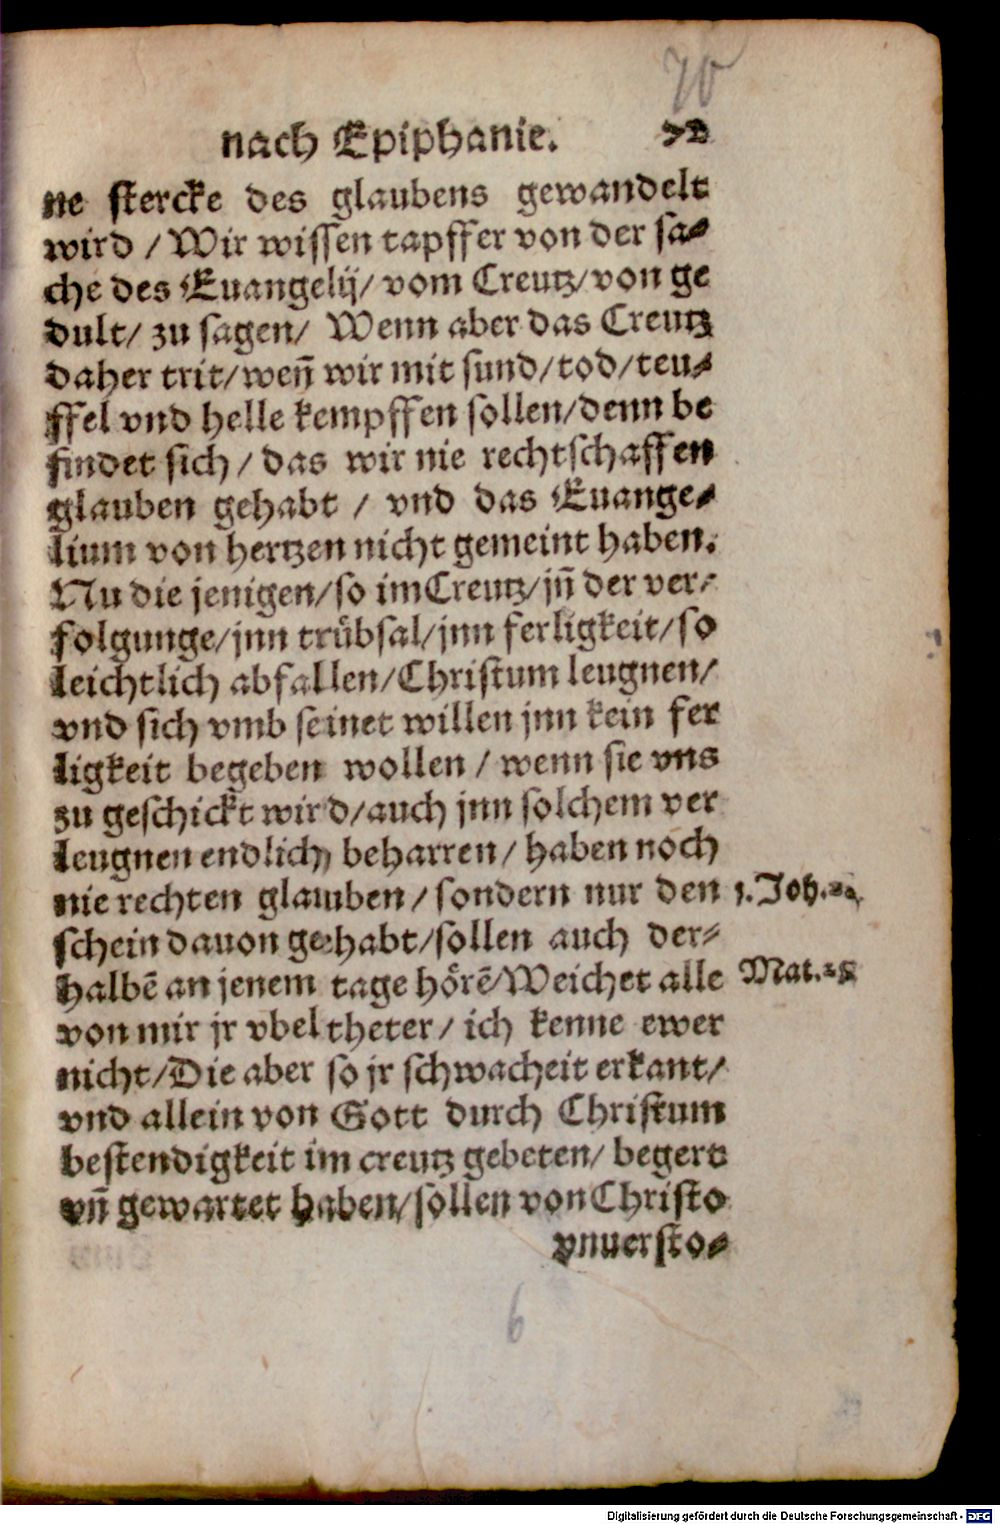 70
nach Epiphanie. 72
ne stercke des glaubens gewandelt
wird / Wir wissen tapffer von der sa-
che des Euangelij / vom Creutz / von ge
dult / zu sagen / Wenn aber das Creutz
daher trit / weñ wir mit sund / tod / teu-
ffel vnd helle kempffen sollen / denn be
findet sich / das wir nie rechtschaffen
glauben gehabt / vnd das Euange-
lium von hertzen nicht gemeint haben.
Nu die jenigen / so im Creutz / jñ der ver-
folgunge / jnn trübsal / jnn ferligkeit / so
leichtlich abfallen / Christum leugnen /
vnd sich vmb seinet willen jnn kein fer
ligkeit begeben wollen / wenn sie vns
zu geschickt wird / auch jnn solchem ver
leugnen endlich beharren / haben noch
nie rechten glauben / sondern nur den 1. Joh. 2.
schein dauon gehabt / sollen auch der-
halbē an jenem tage hörē / Weichet alle Mat. 25
von mir jr vbeltheter / ich kenne ewer
nicht / Die aber so jr schwacheit erkant /
vnd allein von Gott durch Christum
bestendigkeit im creutz gebeten / begert
vñ gewartet haben / sollen von Christo
vnuersto-
6
Digitalisierung gefördert durch die Deutsche Forschungsgemeinschaft - DFG